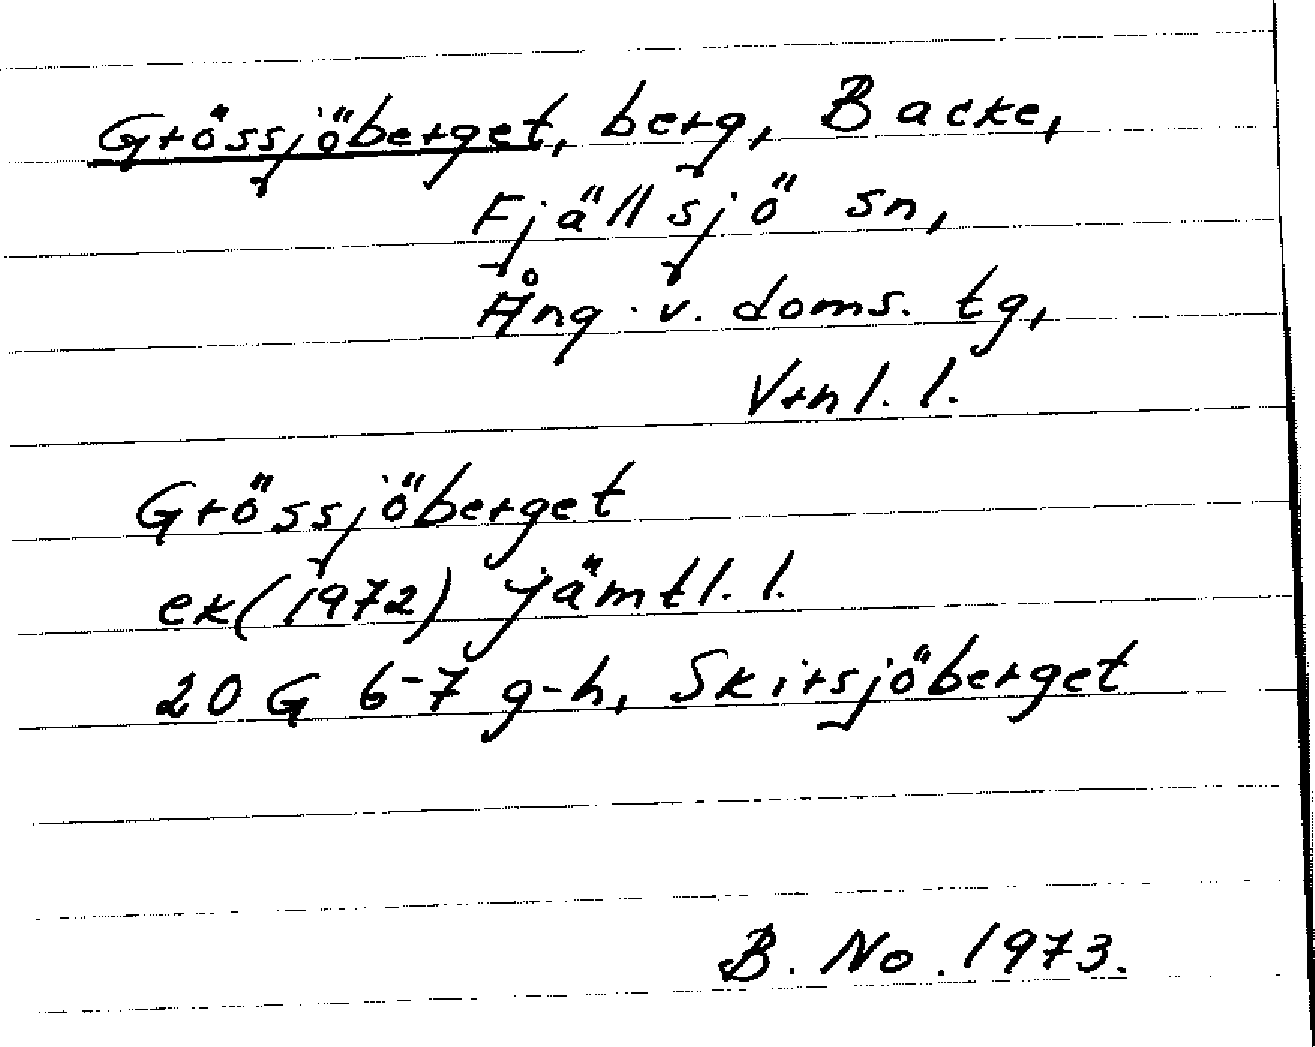 Grössjöberget, berg, Backe,
Fjällsjö sn,
Ång. v. doms. tg,
Vrnl. l.
Grössjöberget
ek(1972) Jämtl. l.
20 G 6-7 g-h, Skirsjöberget
B. No. 1973.